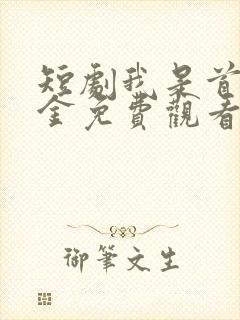 短劇我是首
全免費觀看
御筆文生